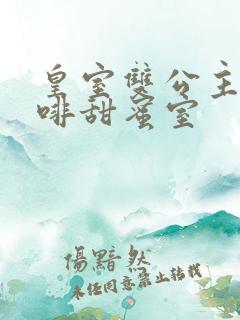 皇室雙公主
啡甜蜜室
傷黯然
未任同意禁止转载